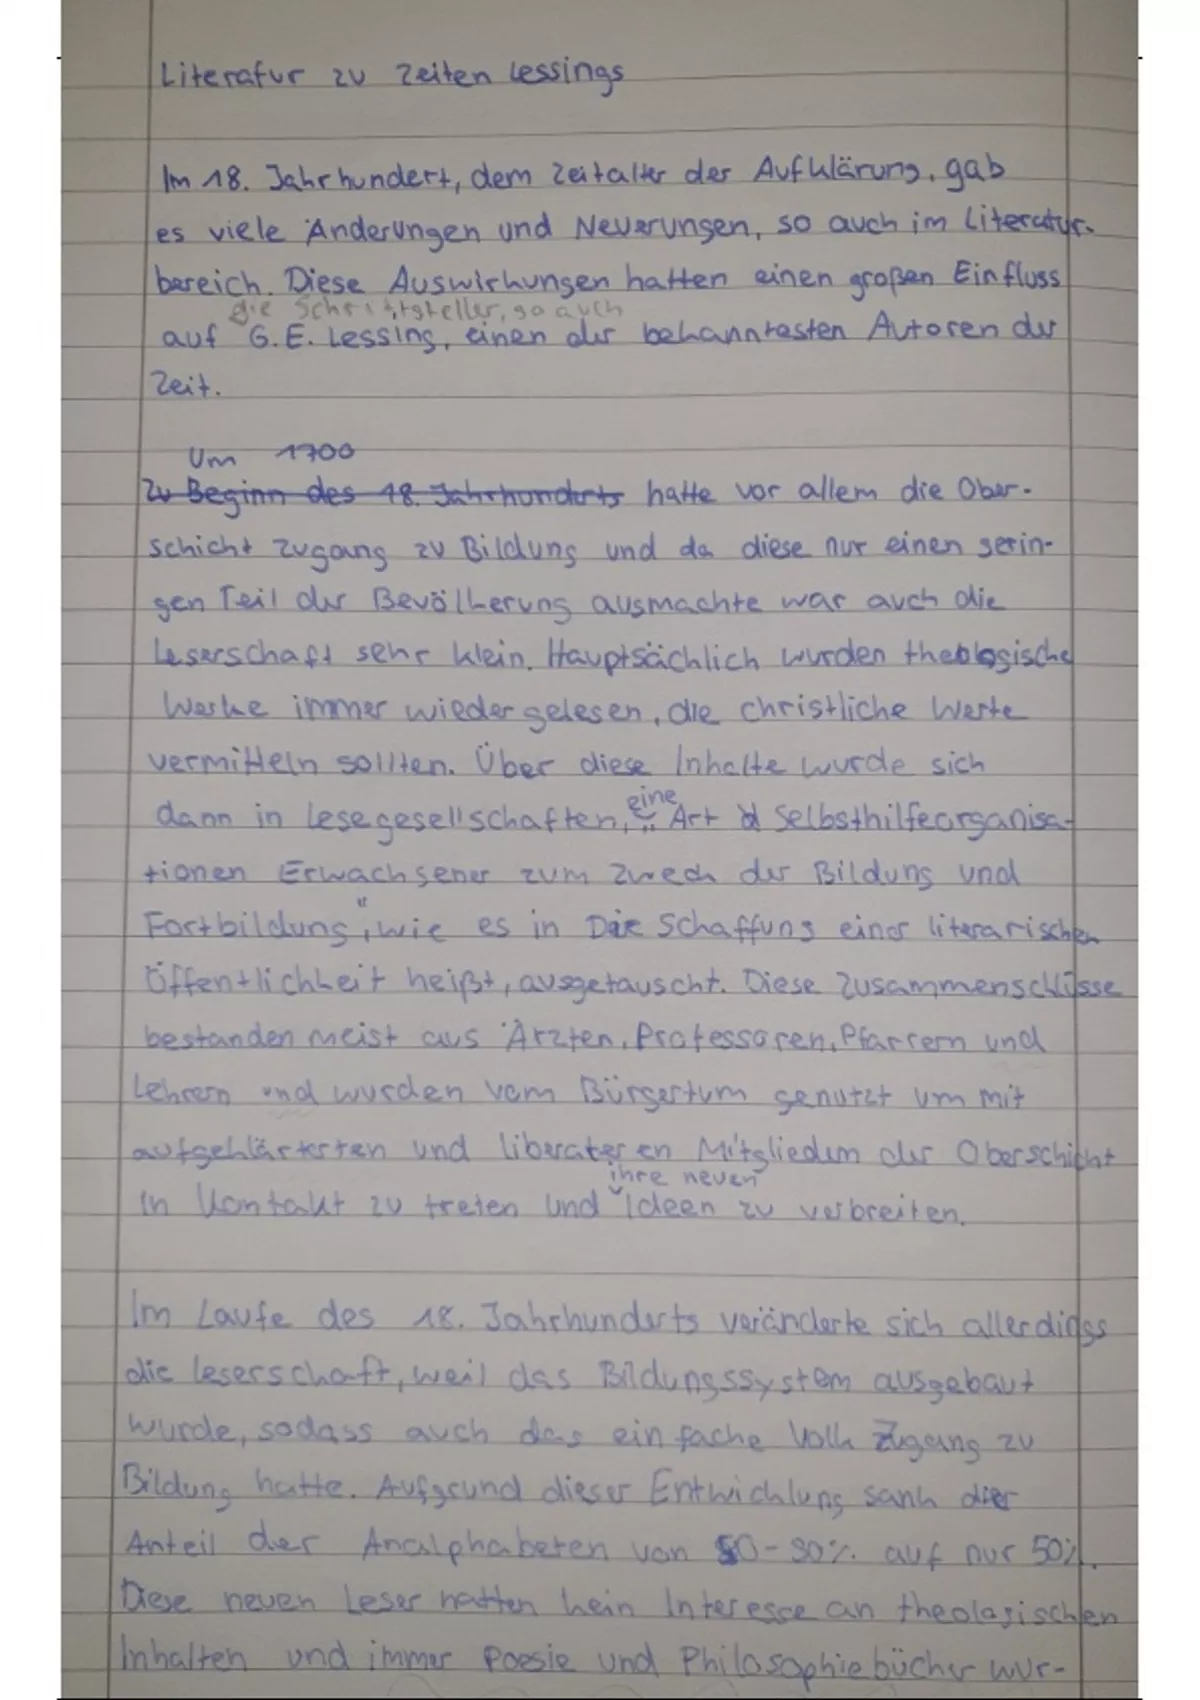 Literatur zu Zeiten Lessings
Im 18. Jahrhundert, dem Zeitalter der Aufklärung, gab
es viele Änderungen und Neuerungen, so auch im Literatur-
bereich. Diese Auswirkungen hatten einen großen Einfluss
die Schriftsteller, so auch
auf G.E. Lessing, einen der bekanntesten Autoren der
Zeit.
Um 1700
Zu Beginn des 18. Jahrhunderts hatte vor allem die Ober-
schicht Zugang zu Bildung und da diese nur einen gerin-
gen Teil der Bevölkerung ausmachte war auch die
Leserschaft sehr klein. Hauptsächlich wurden theologische
Werke immer wieder gelesen, die christliche Werte
vermitteln sollten. Über diese Inhalte wurde sich
eine
dann in Lesegesellschaften, "Art Selbsthilfeorganisa-
tionen Erwachsener zum Zweck der Bildung und
Fortbildung", wie es in Die Schaffung einer literarischen
Öffentlichkeit heißt, ausgetauscht. Diese Zusammenschlüsse
bestanden meist aus Ärzten, Professoren, Pfarrern und
Lehrern und wurden vom Bürgertum genutzt um mit
aufgeklärterten und liberaleren Mitgliedern der Oberschicht
ihre neuen
in Kontakt zu treten und Ideen zu verbreiten.
Im Laufe des 18. Jahrhunderts veränderte sich allerdings
die Leserschaft, weil das Bildungssystem ausgebaut
wurde, sodass auch das einfache Volk Zugang zu
Bildung hatte. Aufgrund dieser Entwicklung sank der
Anteil der Analphabeten von 80-90% auf nur 50%.
Diese neuen Leser hatten kein Interesse an theologischen
Inhalten und immer Poesie und Philosophiebücher wur-